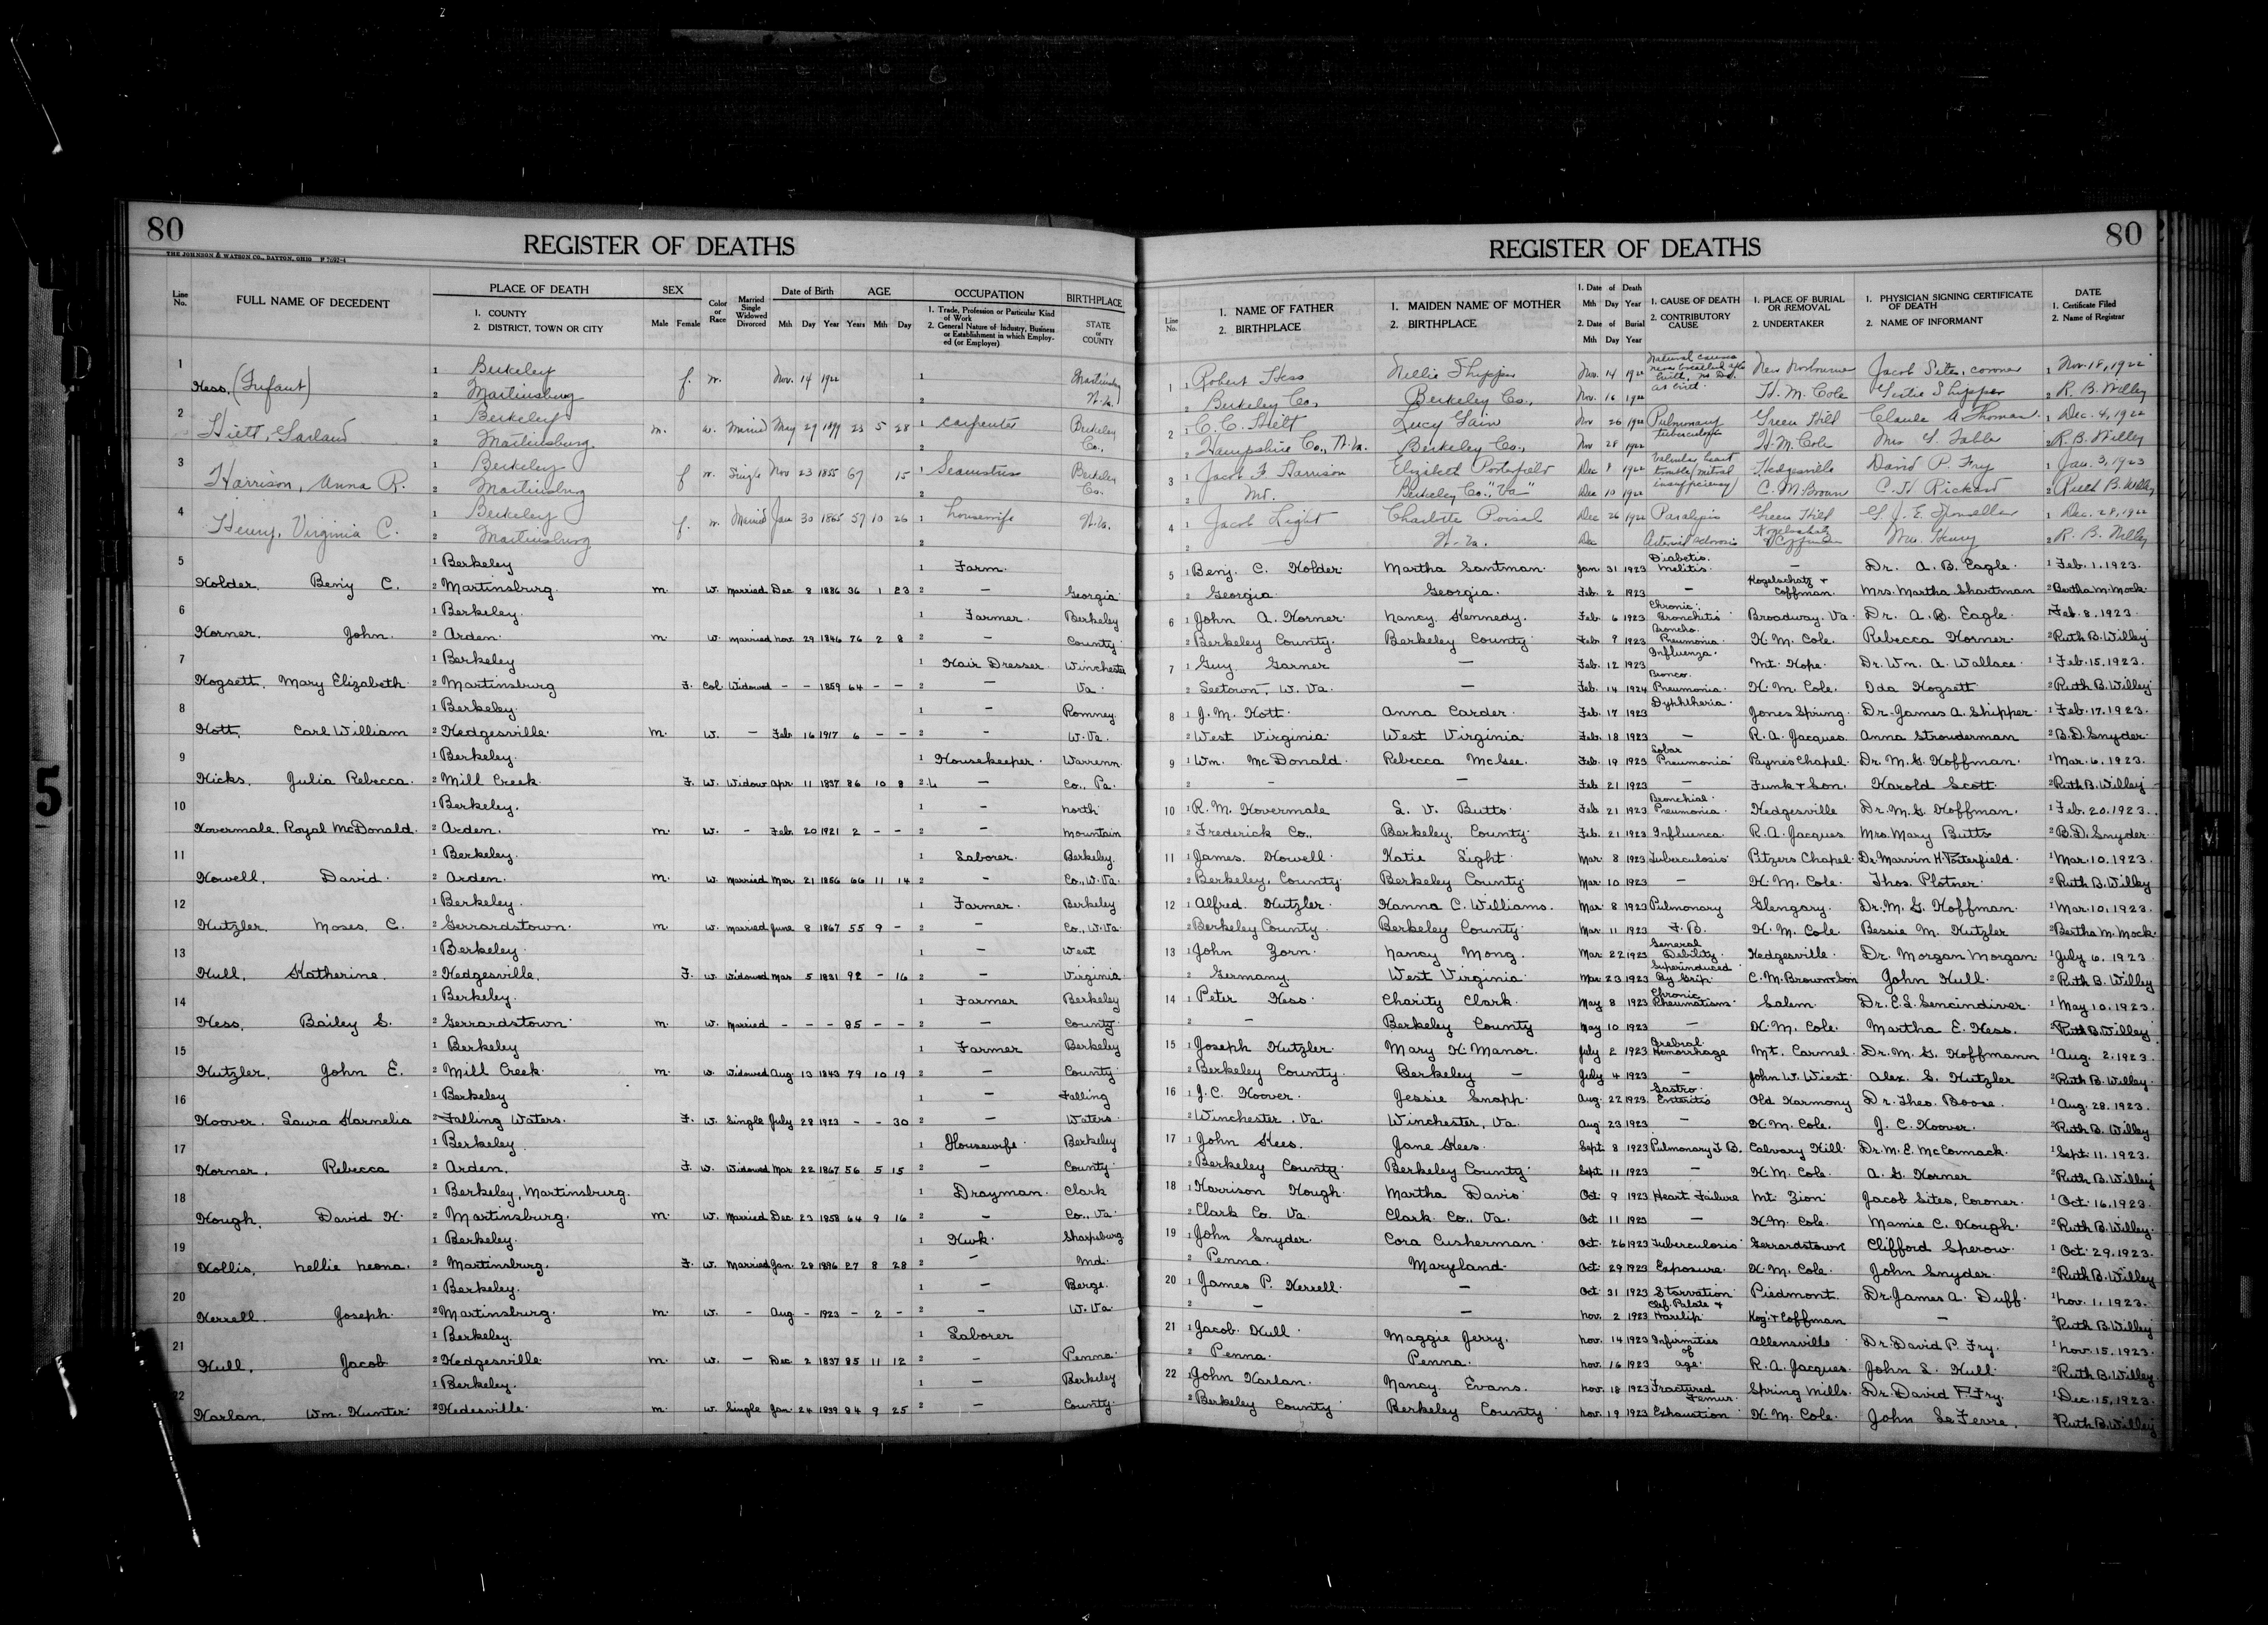 80
REGISTER OF DEATHS
THE JOHNSON & WATSON CO., DAYTON, OHIO
Line No.
FULL NAME OF DECEDENT
PLACE OF DEATH
1. COUNTY
2. DISTRICT, TOWN OR CITY
SEX
Male Female
Color or Race
Married Single Widowed Divorced
Date of Birth
Mth Day Year
AGE
Years Mth Day
OCCUPATION
1. Trade, Profession or Particular Kind of Work
2. General Nature of Industry, Business or Establishment in which Employed (or Employer)
BIRTHPLACE
STATE or COUNTY
1 Berkeley
Hess, (Infant) 2 Martinsburg f. w. Nov. 14 1922 Martinsburg
2 1 Berkeley 1 Carpenter Berkeley
Hiett, Garland 2 Martinsburg m. w. Married May 29 1899 23 5 28 Co.,
3 1 Berkeley 1 Seamstress Berkeley
Harrison, Anna R. 2 Martinsburg f w. Single Nov 23 1855 67 15 2 Co.
4 1 Berkeley 1 housewife
Henry, Virginia C. 2 Martinsburg f. w. Married Jan 30 1865 57 10 26 2
5 1 Berkeley 1 Farm.
Holder, Benj C. 2 Martinsburg. m. W. married Dec 8 1886 36 1 23 2 – Georgia
6 1 Berkeley. 1 Farmer. Berkeley
Horner, John. 2 Arden. m. W. married nov. 29 1846 76 2 8 2 – County
7 1 Berkeley 1 Hair Dresser Winchester
Hogsett, Mary Elizabeth 2 Martinsburg F. Col. Widowed – – 1859 64 – – 2 – Va.
8 1 Berkeley. 1 – Romney
Hott, Carl William 2 Hedgesville. m. W. – Feb. 16 1917 6 – – 2 – W. Va.
9 1 Berkeley. 1 Housekeeper. Warrenn
Hicks, Julia Rebecca. 2 Mill Creek F. W. Widow Apr. 11 1837 86 10 8 2 – Co., Pa.
10 1 Berkeley. 1 – north
Hovermale, Royal McDonald. 2 Arden. m. W. – Feb. 20 1921 2 – – 2 – mountain
11 1 Berkeley. 1 Laborer. Berkeley
Howell, David. 2 Arden. m. W. married Mar. 21 1856 66 11 14 2 – Co., W. Va.
12 1 Berkeley. 1 Farmer. Berkeley
Hutzler, Moses, C. 2 Gerrardstown. m. W. married June 8 1867 55 9 – 2 – Co., W. Va.
13 1 Berkeley. 1 – West
Hull, Katherine. 2 Hedgesville. F. W. Widowed Mar. 5 1831 92 – 16 2 – Virginia
14 1 Berkeley. 1 Farmer Berkeley
Hess, Bailey S. 2 Gerrardstown. m. W. Married – – – 85 – – 2 – County
15 1 Berkeley 1 Farmer Berkeley
Hutzler, John E. 2 Mill Creek. m. W. Widowed Aug 13 1843 79 10 19 2 – County
16 1 Berkeley 1 – Falling
Hoover, Laura Karnelia 2 Falling Waters. F. W. Single July 28 1923 – – 30 2 – Waters
17 1 Berkeley. 1 Housewife. Berkeley
Horner, Rebecca 2 Arden. F. W. Widowed Mar. 22 1867 56 5 15 2 – County
18 1 Berkeley, Martinsburg. 1 Drayman. Clark
Hough, David H. 2 Martinsburg. m. W. Married Dec. 23 1858 64 9 16 2 – Co., Va.
19 1 Berkeley. 1 Hwk. Sharpsburg
Hollis, nellie neona. 2 Martinsburg. F. W. Married Jan. 28 1896 27 8 28 2 – Md.
20 1 Berkeley. 1 – Berge.
Herrell, Joseph. 2 Martinsburg. m. W. – Aug – 1923 – 2 – 2 – W. Va.
21 1 Berkeley. 1 Laborer
Hull, Jacob 2 Hedgesville. m. W. – Dec. 2 1837 85 11 12 2 – Penna.
22 1 Berkeley. 1 – Berkeley
Harlan, Wm. Hunter 2 Hedesville. m. W. Single Jan. 24 1839 84 9 25 2 – County.
80
REGISTER OF DEATHS
Line No.
1. NAME OF FATHER
2. BIRTHPLACE
1. MAIDEN NAME OF MOTHER
2. BIRTHPLACE
1. Date of Death
Mth Day Year
2. Date of Burial
Mth Day Year
1. CAUSE OF DEATH
2. CONTRIBUTORY CAUSE
1. PLACE OF BURIAL OR REMOVAL
2. UNDERTAKER
1. PHYSICIAN SIGNING CERTIFICATE OF DEATH
2. NAME OF INFORMANT
DATE
1. Certificate Filed
2. Name of Registrar
1 1 Robert Hess Nellie Shipper Nov. 14 1922 Natural causes Jacob Sites, coroner 1 Nov. 18, 1922
2 Berkeley Co., Berkeley Co., Nov. 16 1922 H. M. Cole Shipper 2 R. B. Willey
2 1 C. C. Hiett Lucy Nov 26 1922 Pulmonary tuberculosis Green Hill Claude A Thomas 1 Dec. 4, 1922
2 Hampshire Co., Berkeley Co., Nov 28 1922 H. M. Cole Mrs 2 R. B. Willey
3 1 Jacob F Harrison Elizabeth Porterfield Dec 8 1922 Valvular heart trouble (mitral insufficiency) Hedgesville David P. Fry 1 Jan. 3, 1923
2 Md. Berkeley Co., "Va" Dec 10 1922 C. M. Brown C. H Rickard 2 Ruth B. Willey
4 1 Jacob Light Charlotte Poisal Dec 26 1922 Paralysis Green Hill 1 Dec. 28, 1922
2 Dec Arterio sclerosis Mrs. Henry 2 R. B. Willey
5 1 Benj. C. Holder Martha Santman. Jan. 31 1923 Diabetis melitis. – Dr. A. B. Eagle. 1 Feb. 1. 1923.
2 Georgia Georgia. Feb. 2 1923 – Kogelschatz + Coffman. Mrs. Martha Shartman 2 Bertha M. Mock.
6 1 John A. Horner. nancy Kennedy. Feb. 6 1923 Chronic Bronchitis Broadway, Va. Dr. A. B. Eagle 1 Feb. 8. 1923.
2 Berkeley County. Berkeley County Feb. 9 1923 Broncho. Pneumonia. H. M. Cole. Rebecca Horner. 2 Ruth B. Willey
7 1 Guy Garner – Feb. 12 1923 Influenza. Mt. Hope. Dr. Wm. A. Wallace. 1 Feb. 15. 1923.
2 Seetown, W. Va. – Feb. 14 1924 Bronco. Pneumonia. H. M. Cole. Ida Hogsett 2 Ruth B. Willey
8 1 J. M. Hott. Anna Carder. Feb. 17 1923 Dyphtheria. Jones Spring. Dr. James A. Shipper. 1 Feb. 17. 1923.
2 West Virginia West Virginia Feb. 18 1923 – R. A. Jacques. Anna Strouderman 2 B. D. Snyder.
9 1 Wm. McDonald. Rebecca McGee. Feb. 19 1923 Lobar Pneumonia Payne's Chapel. Dr. M. G. Hoffman. 1 Mar. 6. 1923.
2 – – Feb 21 1923 – Funk + Son. Harold Scott 2 Ruth B. Willey
10 1 R. M. Hovermale L. V. Butts Feb 21 1923 Bronchial Pneumonia. Hedgesville Dr. M. G. Hoffman. 1 Feb. 20. 1923.
2 Frederick Co., Berkeley, County Feb. 21 1923 Influenca. R. A. Jacques Mrs. Mary Butts 2 B. D. Snyder.
11 1 James. Howell. Katie Light Mar. 8 1923 Tuberculosis Pitzers Chapel. Dr. Marvin H. Porterfield. 1 Mar. 10. 1923.
2 Berkeley, County Berkeley County Mar. 10 1923 – H. M. Cole. Thos. Plotner. 2 Ruth B. Willey
12 1 Alfred. Hutzler. Hanna C. Williams. Mar 8 1923 Pulmonary Glengary. Dr. M. G. Hoffman. 1 Mar. 10, 1923.
2 Berkeley County. Berkeley County Mar. 11 1923 T. B. H. M. Cole. Bessie M. Hutzler 2 Bertha M. Mock.
13 1 John Zorn. nancy Mong. Mar. 22 1923 General Debility. Hedgesville. Dr. Morgan Morgan. 1 July 6, 1923
2 Germany West Virginia Mar. 23 1923 Superinduced By Grip C. M. Brown + Son John Hull. 2 Ruth B. Willey
14 1 Peter Hess. Charity Clark. May 8 1923 Chronic Rheumatism. Salem. Dr. E. L. Sencindiver. 1 May 10. 1923.
2 – Berkeley County May 10 1923 – H. M. Cole. Martha E. Hess. 2 Ruth B. Willey
15 1 Joseph Hutzler. Mary H. Manor. July 2 1923 Crebral Hemorrhage Mt. Carmel. Dr. M. G. Hoffmann 1 Aug. 2. 1923.
2 Berkeley County. Berkeley – July 4 1923 – John W. Wiest. Alex. S. Hutzler 2 Ruth B. Willey.
16 1 J. C. Hoover. Jessie Snapp. Aug. 22 1923. Gastro Enteritis Old Harmony Dr. Theo. Boose. 1 Aug. 28. 1923.
2 Winchester, Va. Winchester, Va. Aug 23 1923 – H. M. Cole. J. C. Hoover. 2 Ruth B. Willey
17 1 John Kees. Jane Kees. Sept. 8 1923 Pulmonary T. B. Calvary Hill. Dr. M. E. McCormack. 1 Sept. 11. 1923.
2 Berkeley County Berkeley County Sept. 11 1923 – H. M. Cole. A. G. Horner 2 Ruth B. Willey
18 1 Harrison Hough. Martha Davis Oct. 9 1923 Heart Failure Mt. Zion Jacob Sites, Coroner. 1 Oct. 16. 1923.
2 Clark Co. Va. Clark. Co., Va. Oct 11 1923 – H. M. Cole. Mamie C. Hough. 2 Ruth B. Willey.
19 1 John Snyder. Cora Cusherman. Oct. 26 1923 Tuberculosis Gerrardstown Clifford Sperow. 1 Oct. 29. 1923.
2 Penna. Maryland. Oct. 29 1923 Exposure. H. M. Cole. John Snyder. 2 Ruth B. Willey
20 1 James P. Herrell. – Oct. 31 1923 Starvation Piedmont. Dr. James A. Duff. 1 nov. 1. 1923.
2 – – nov. 2 1923 Clef. Palate + Harelip. Kog. + Coffman – 2 Ruth B. Willey
21 1 Jacob. Hull. Maggie Jerry. nov. 14 1923 Infirmities of age. Allensville Dr. David P. Fry. 1 nov. 15. 1923.
2 Penna. Penna. nov. 16 1923 R. A. Jacques. John L. Hull 2 Ruth B. Willey.
22 1 John Harlan. Nancy Evans. nov. 18 1923 Fractured Femur Spring Mills. Dr. David P. Fry. 1 Dec. 15, 1923.
2 Berkeley County Berkeley County nov. 19 1923 Exhaustion H. M. Cole. John Le Fevre. 2 Ruth B. Willey
5